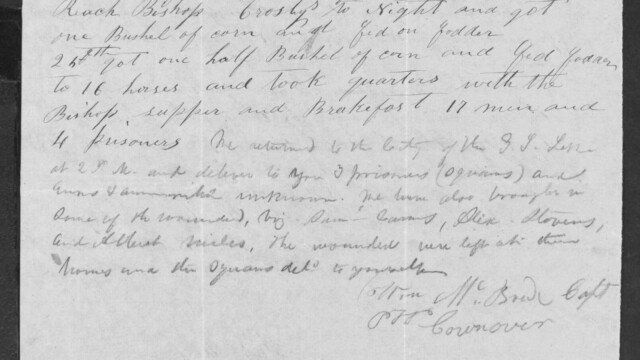 Reach Bishop Crosbys to Night and got
one Bushel of corn and fed on fodder
24th got one half Bushel of corn and fed fodder
to 16 horses and took quarters with the
Bishop supper and Brakefast 17 men and
4 prisoners We returned to the City of the G. S. Lake
at 2 P. M. and deliver to you 3 prisoners (Squaws) and
Guns & ammunition unknown. We have also brought in
some of the wounded, viz. Sam Carns, Alex Stevens,
and Albert Miles, The wounded were left at their
homes and the Squaws deld to yourself
Wm McBride Capt
Per Cownover